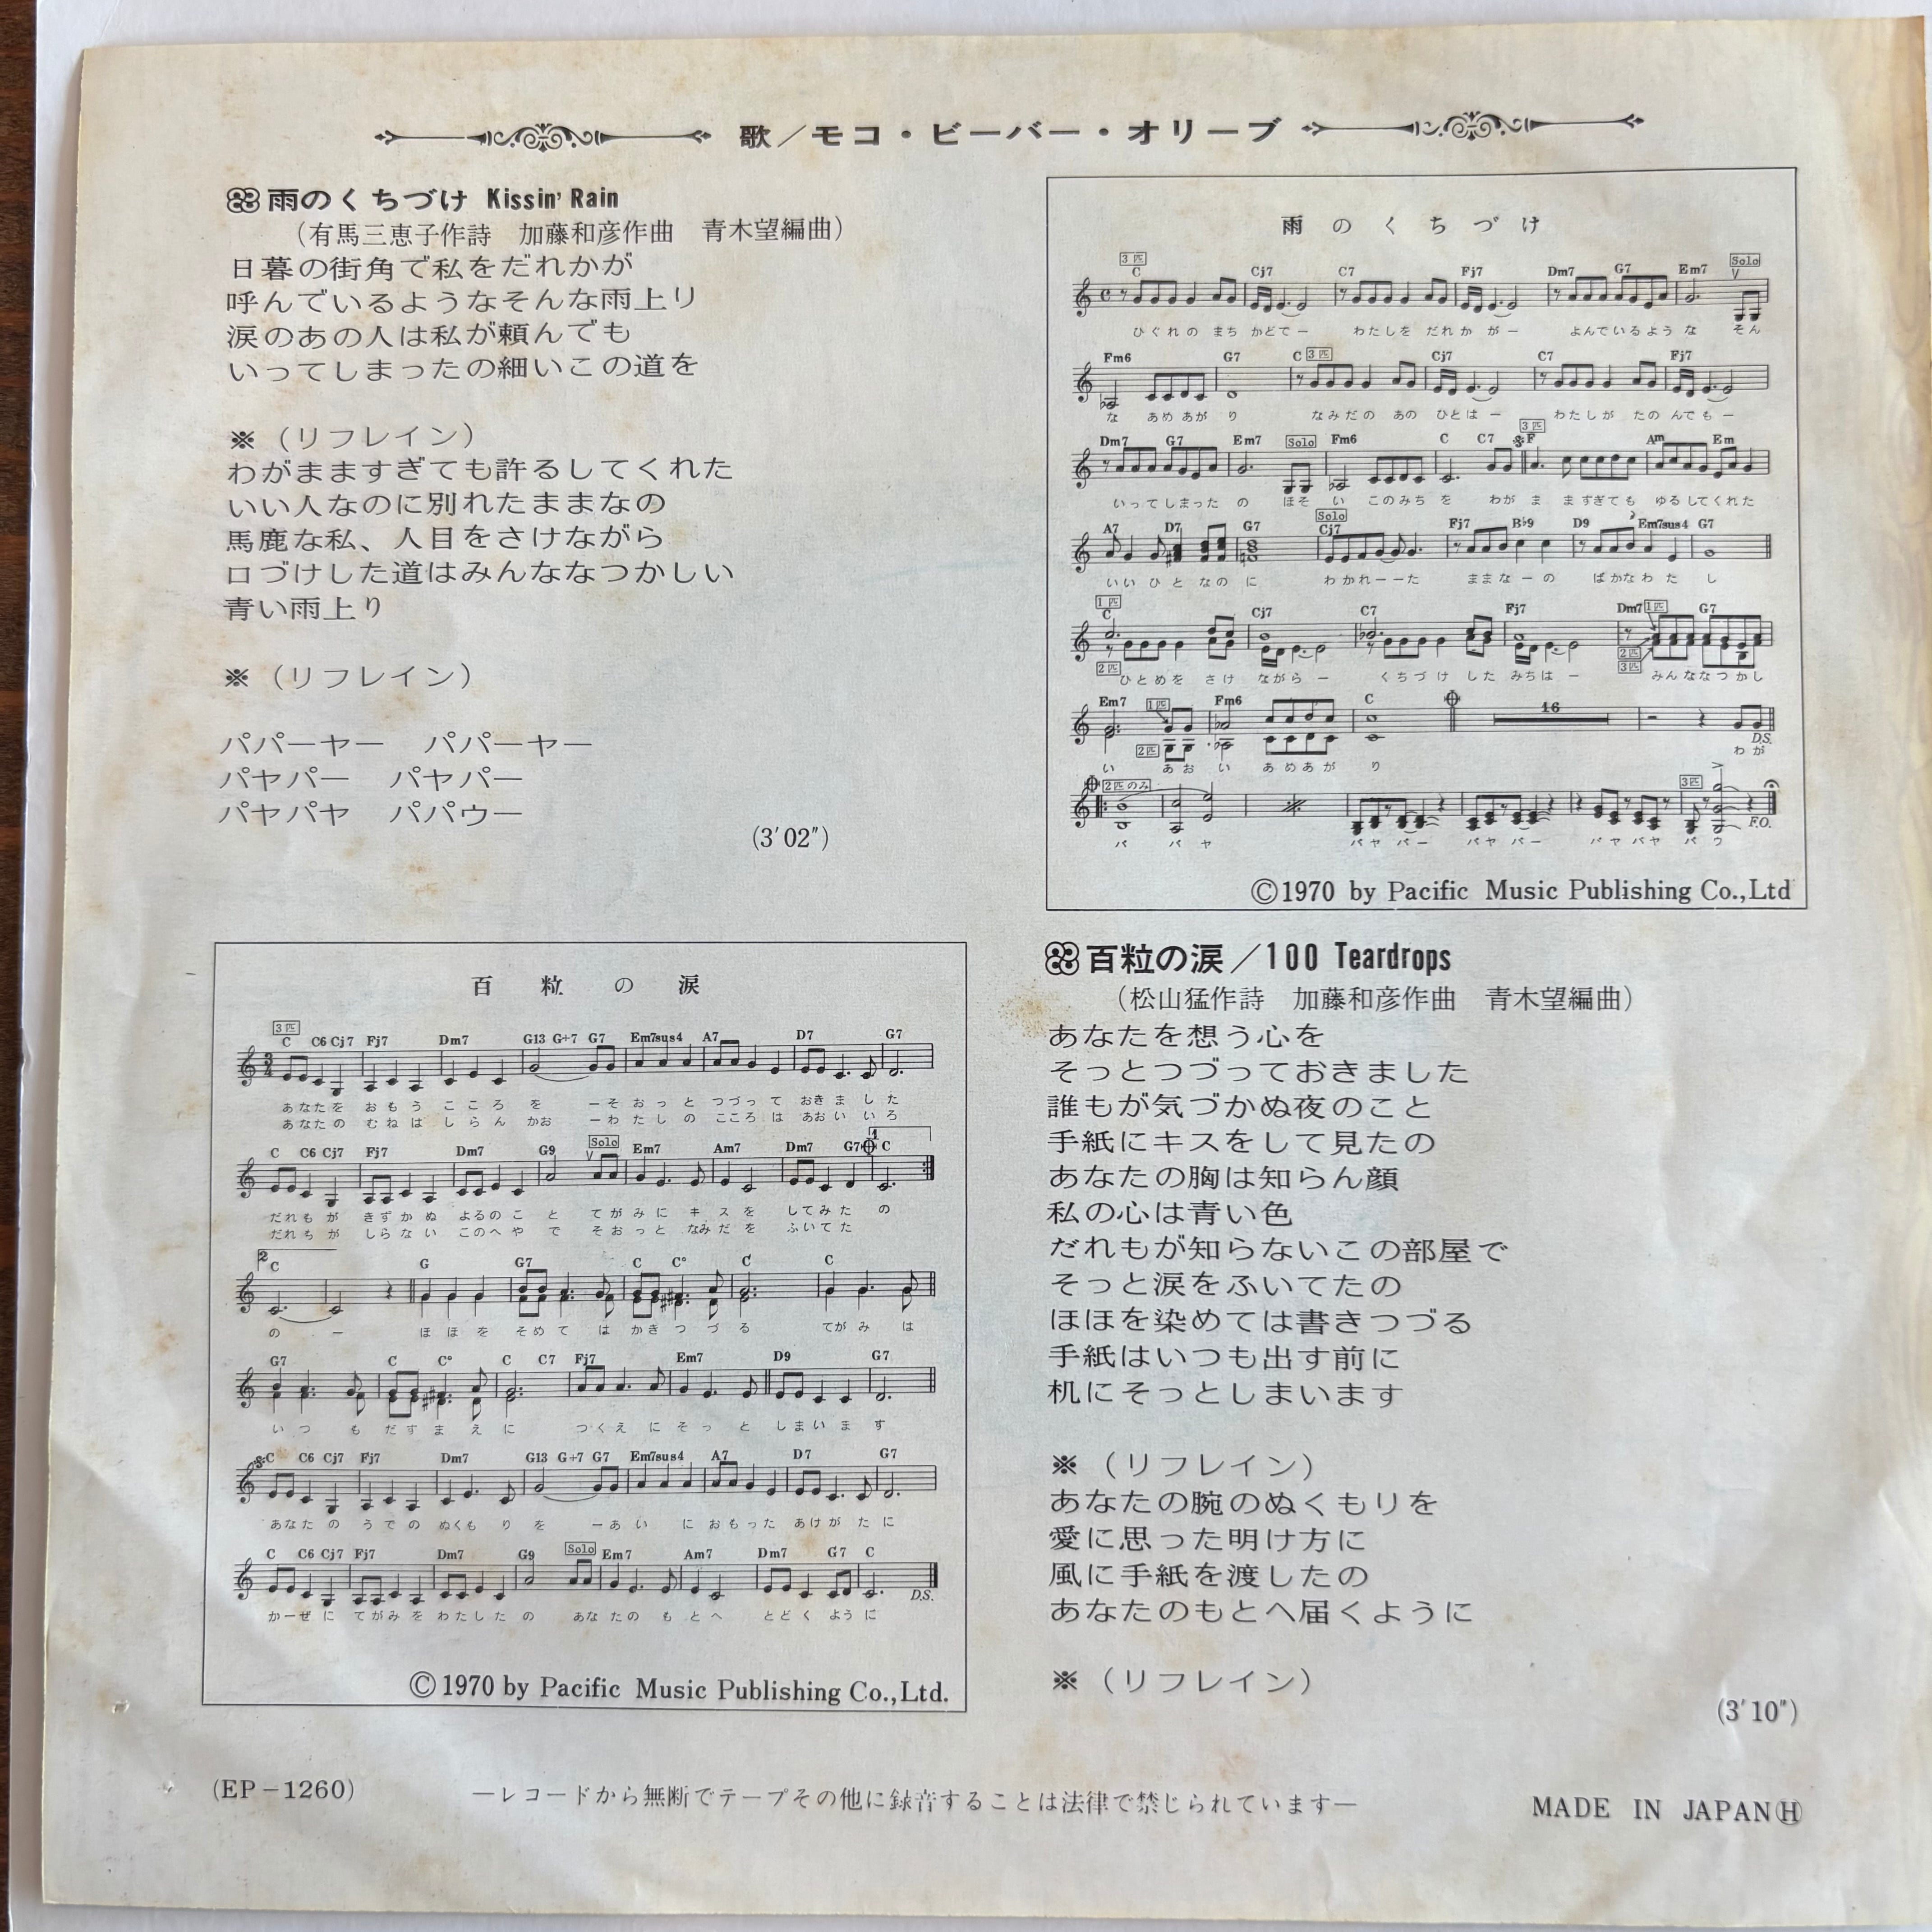 歌／モコ・ビーバー・オリーブ
雨のくちづけ Kissin' Rain
（有馬三恵子作詩　加藤和彦作曲　青木望編曲）
日暮の街角で私をだれかが
呼んでいるようなそんな雨上り
涙のあの人は私が頼んでも
いってしまったの細いこの道を
※（リフレイン）
わがまますぎても許るしてくれた
いい人なのに別れたままなの
馬鹿な私、人目をさけながら
口づけした道はみんななつかしい
青い雨上り
※（リフレイン）
パパーヤー　パパーヤー
パヤパー　パヤパー
パヤパヤ　パパウー
(3'02")
雨のくちづけ
3匹 C Cj7 C7 Fj7 Dm7 G7 Em7 Solo
ひぐれの まち かどでー わたしを だれか がー よんでいるよう な そん
Fm6 G7 C 3匹 Cj7 C7 Fj7
な あめ あが り なみだの あの ひとは ー わたしが たの んでも ー
3匹
Dm7 G7 Em7 Solo Fm6 C C7 F Am Em
いってしまった の ほそ い このみち を わが ま ま すぎても ゆるしてくれた
Solo
A7 D7 G7 Cj7 Fj7 B♭9 D9 Em7sus4 G7
いい ひ と なの に わかれーーた ままな ーの ばかなわ た し
1匹 C Cj7 C7 Fj7 Dm7 1匹 G7
2匹 2匹 3匹
ひとめを さけ ながら ー くちづ け した みちは ー みんななつ かし
Em7 1匹 Fm6 C 16
2匹 D.S.
い あお い あめあが り わが
2匹のみ 3匹 F.O.
パ パ ヤ パヤ パー パヤ パー パヤ パヤ パ ウ
©1970 by Pacific Music Publishing Co.,Ltd
百粒の涙
3匹
C C6 Cj7 Fj7 Dm7 G13 G+7 G7 Em7sus4 A7 D7 G7
あなたを おもう こころ を ーそ おっと つづって おき ま した
あなたの むねは しらん かお ーわ たしの こころ は あおい いろ
C C6 Cj7 Fj7 Dm7 G9 Solo Em7 Am7 Dm7 G7 1 C
だれもが きずかぬ よるのこ と てがみに キスを してみた の
だれもが しらない このへや で そおっと なみだを ふいてた
2 C G G7 C C° C C
の ー ほほを そめて は かき つ づる てがみ は
G7 C C° C C7 Fj7 Em7 D9 G7
いつ も だす ま え に つくえ にそっ と しまいま す
C C6 Cj7 Fj7 Dm7 G13 G+7 G7 Em7sus4 A7 D7 G7
あなた の うでの ぬくも りを ーあい に おもった あけが たに
C C6 Cj7 Fj7 Dm7 G9 Solo Em7 Am7 Dm7 G7 C
D.S.
かーぜ に てがみを わたした の あなたの もとへ とどく ように
©1970 by Pacific Music Publishing Co.,Ltd.
百粒の涙／100 Teardrops
（松山猛作詩　加藤和彦作曲　青木望編曲）
あなたを想う心を
そっとつづっておきました
誰もが気づかぬ夜のこと
手紙にキスをして見たの
あなたの胸は知らん顔
私の心は青い色
だれもが知らないこの部屋で
そっと涙をふいてたの
ほほを染めては書きつづる
手紙はいつも出す前に
机にそっとしまいます
※（リフレイン）
あなたの腕のぬくもりを
愛に思った明け方に
風に手紙を渡したの
あなたのもとへ届くように
※（リフレイン）
(3'10")
(EP－1260)
―レコードから無断でテープその他に録音することは法律で禁じられています―
MADE IN JAPANⒽ